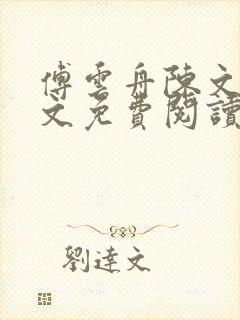 傅雲舟陳文
文免費閱讀
劉達文